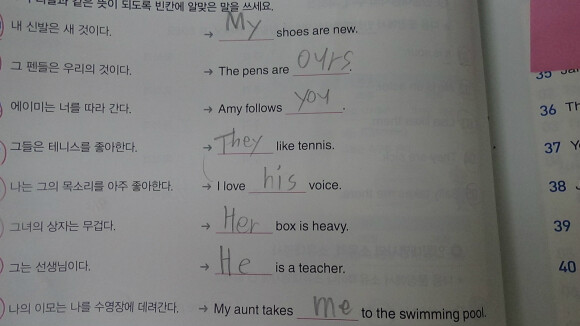 같은 뜻이 되도록 빈칸에 알맞은 말을 쓰세요.
내 신발은 새 것이다. → My shoes are new.
그 펜들은 우리의 것이다. → The pens are ours.
에이미는 너를 따라 간다. → Amy follows you.
그들은 테니스를 좋아한다. → They like tennis.
나는 그의 목소리를 아주 좋아한다. → I love his voice.
그녀의 상자는 무겁다. → Her box is heavy.
그는 선생님이다. → He is a teacher.
나의 이모는 나를 수영장에 데려간다. → My aunt takes me to the swimming pool.
35
36 Th
37
38
39
40